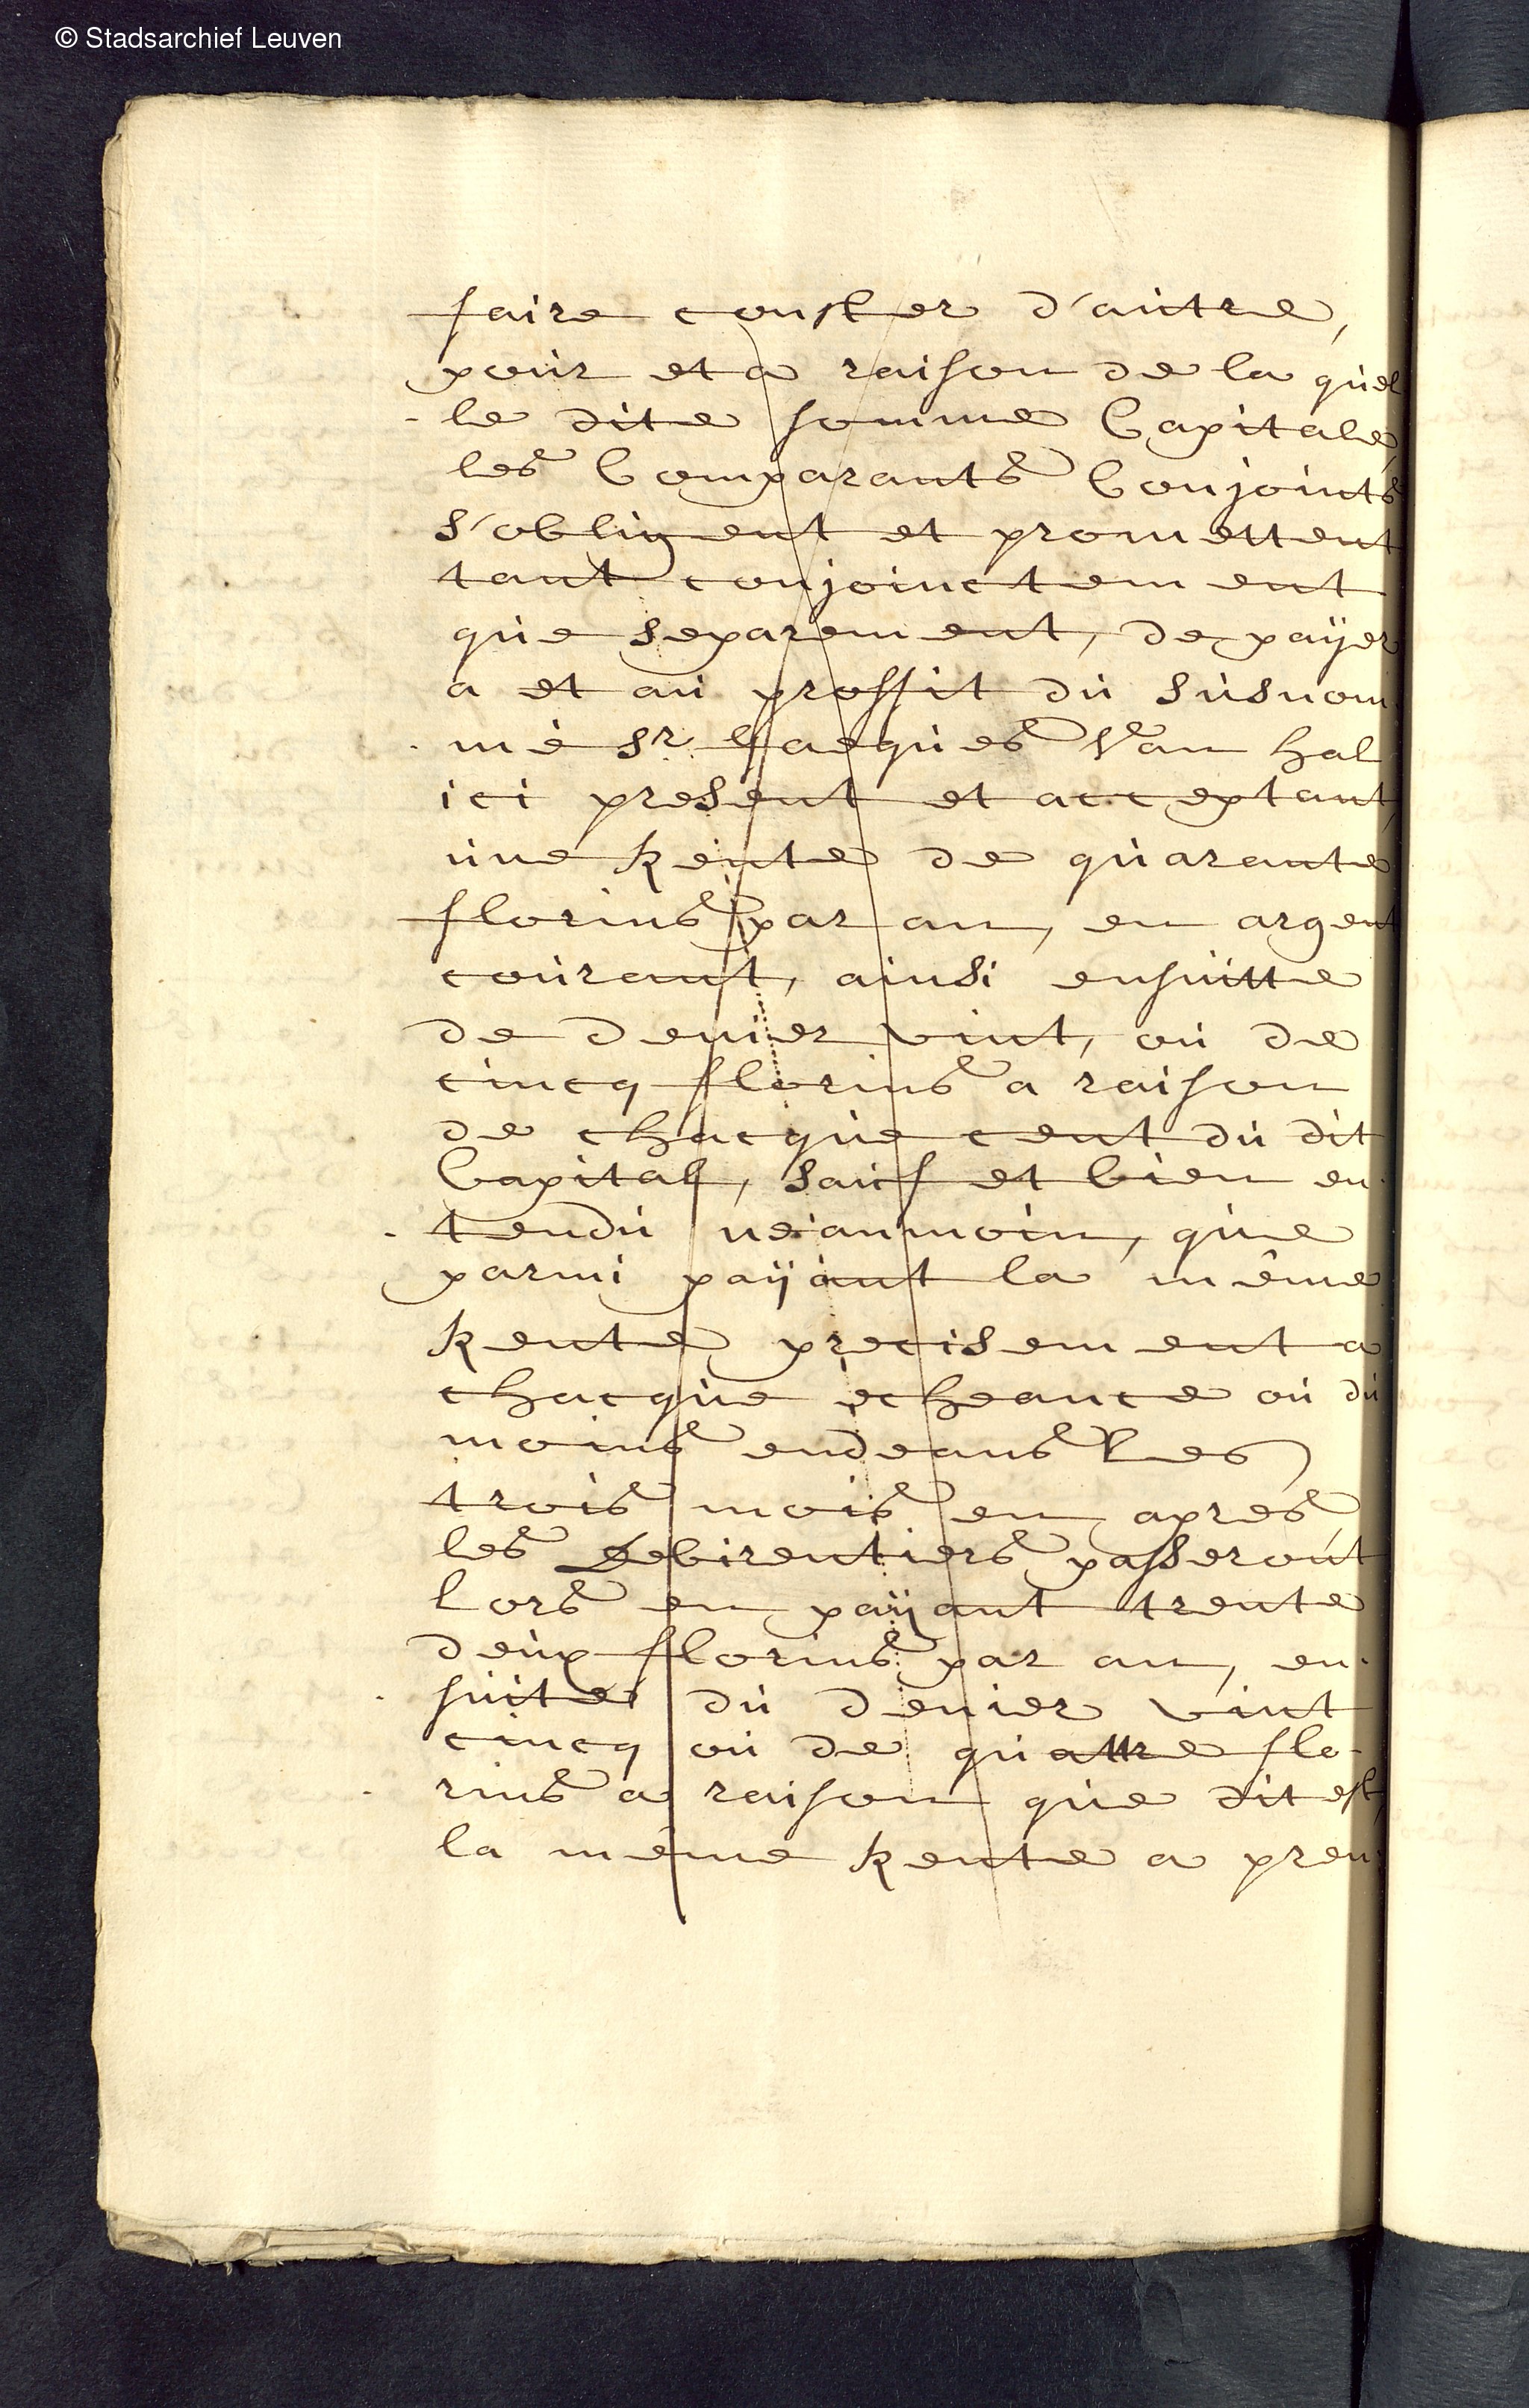 © Stadsarchief Leuven
faire conster d'autre,
pour et a raison de la quel
-le dite somme Capitale,
les Comparants Conjoints
s'obligent et promettent
tant conjoinctement
que separement, de payer
a et au proffit du susnom-
-mé Sr. Jacques Van Hal
ici present et acceptant,
une Rente de quarante
florins par an, en argent
courant, ainsi ensuitte
de denier vint, ou de
cincq florins a raison
de chacque cent du dit
Capital, sauf et bien en-
-tendu neanmoin, que
parmi payant la même
Rente precisement a
chacque echeance ou du
moins endeans les
trois mois en apres,
les Debirentiers passeront
lors en payant trente
deux florins par an, en-
-suite du denier vint
cincq ou de quattre flo-
-rins a raison que dit est,
la même Rente a pren-